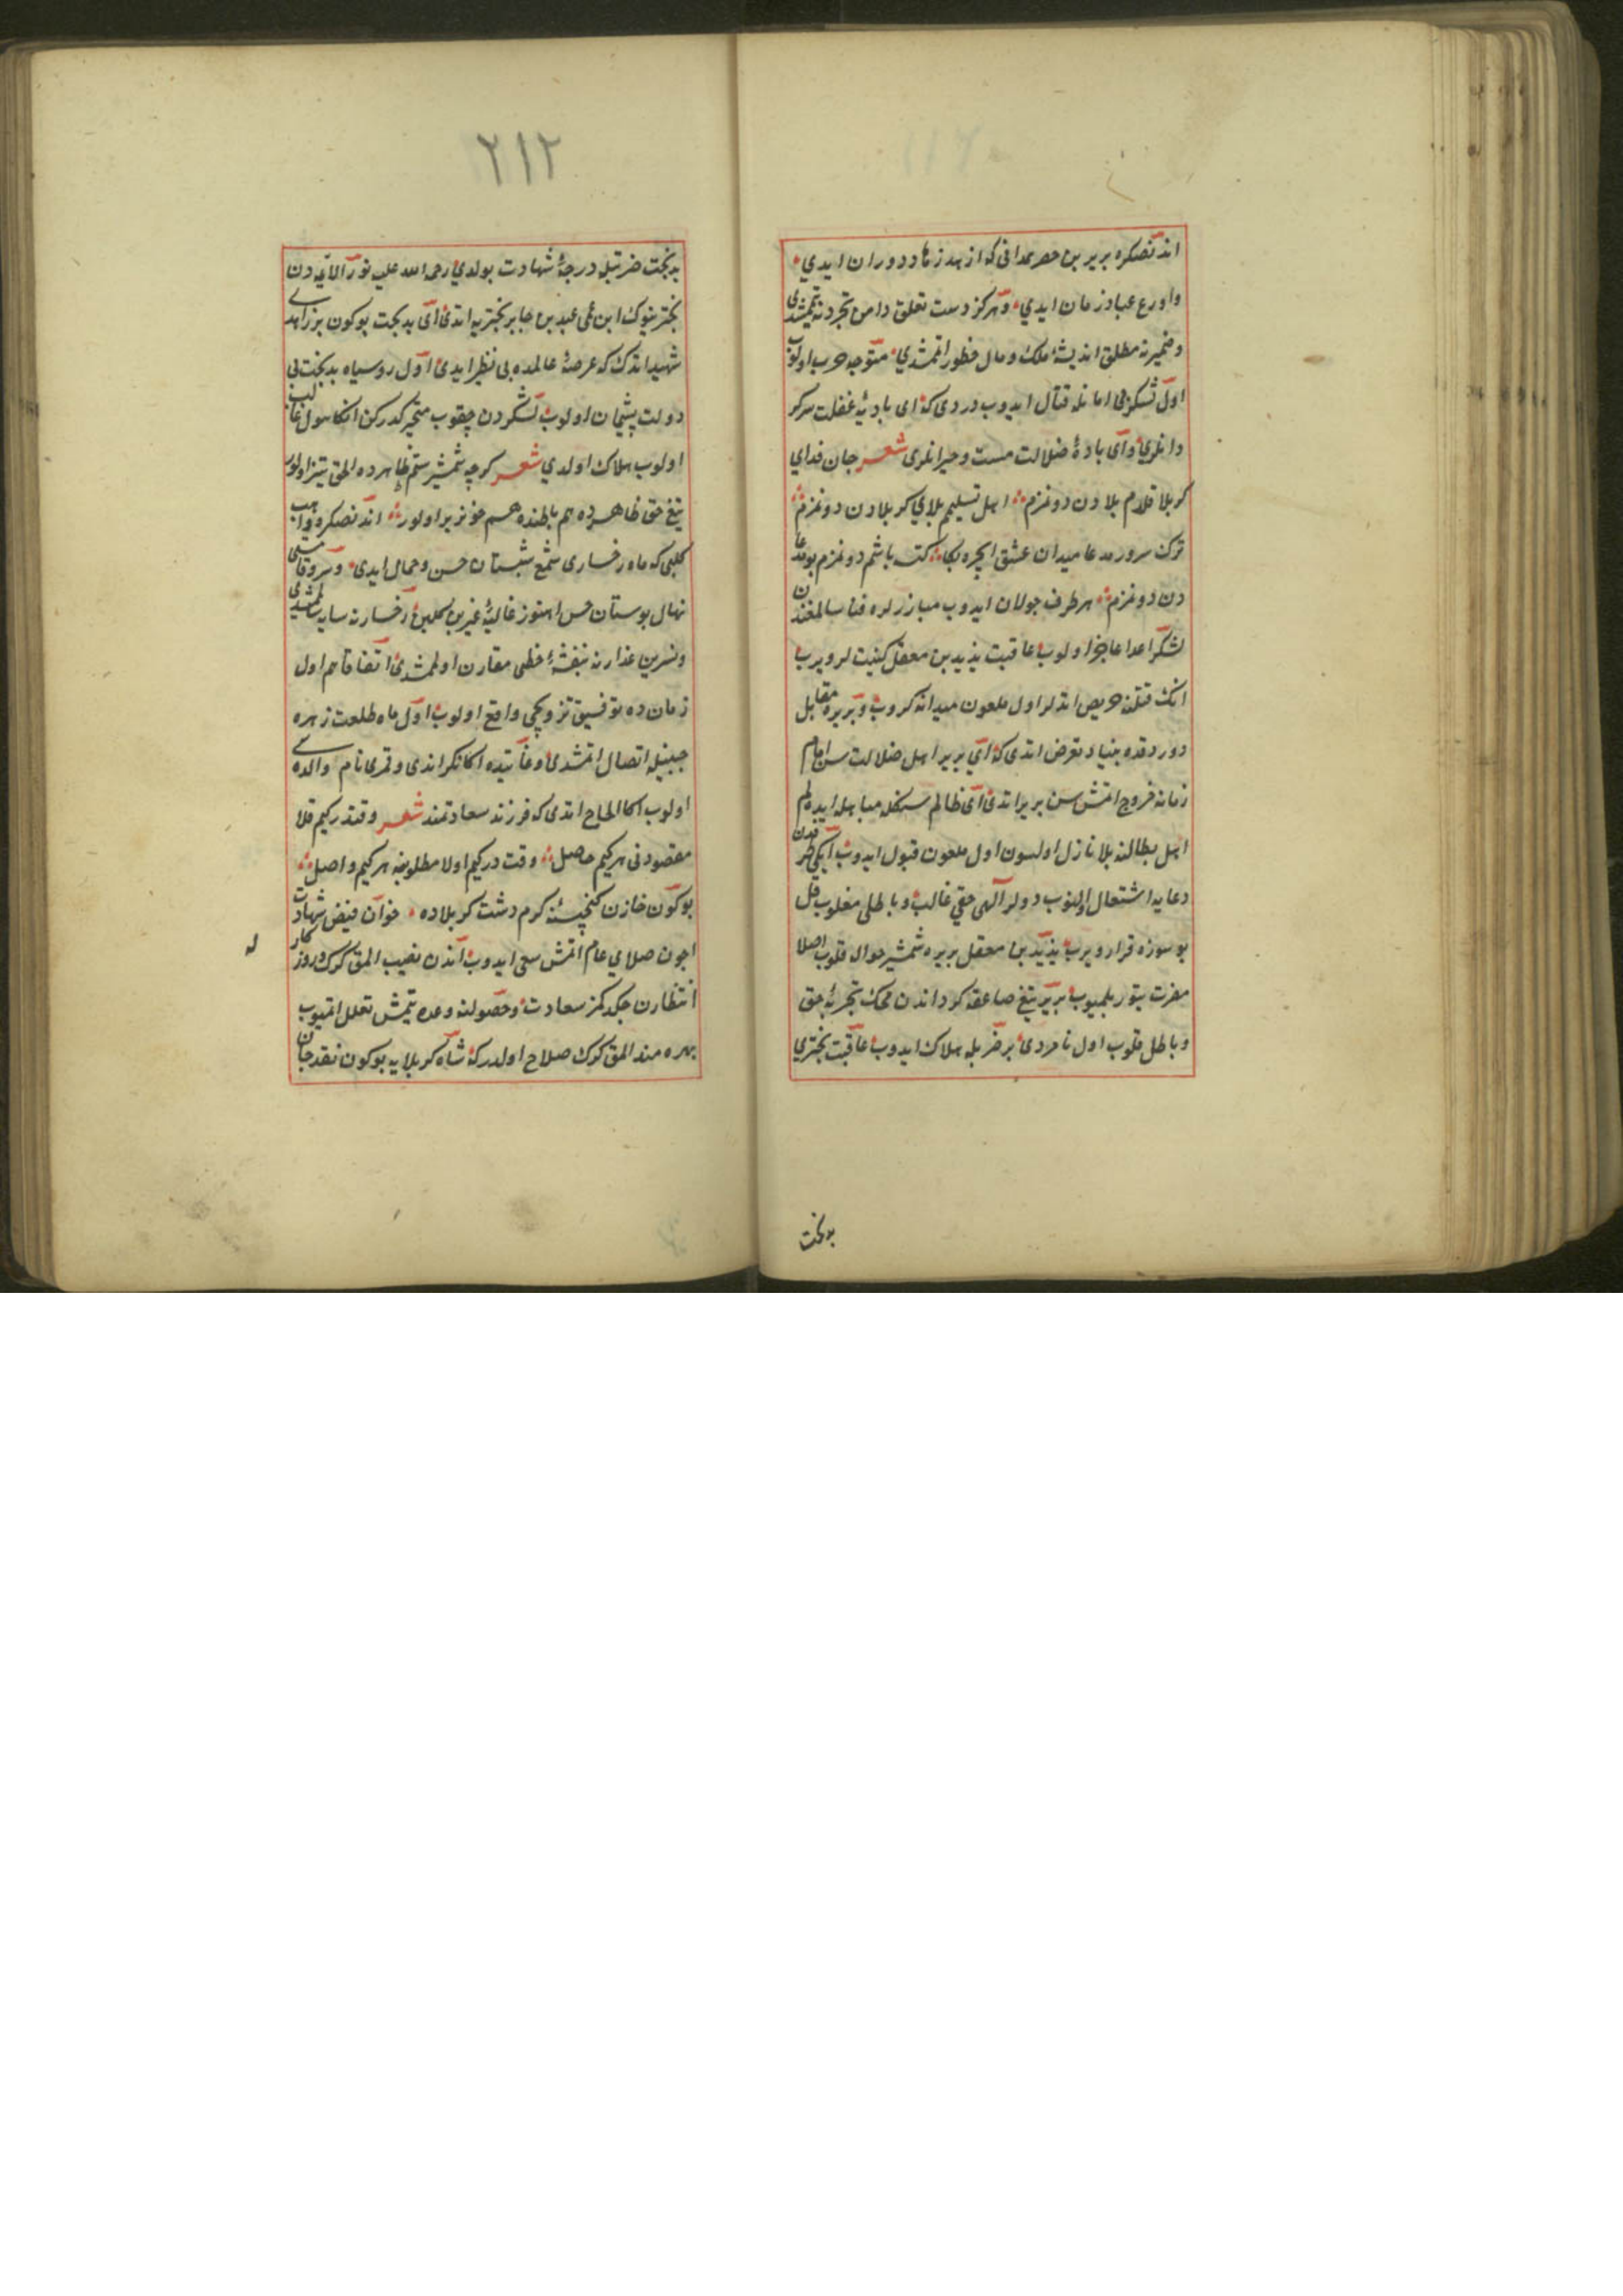 اندنصکره بریر بن حصر همدانی که ازهد زهاد دوران ایدی
واورع عباد زمان ایدی وهرکز دست تعلق دامن تجردنه یتمشدی
وضمیرنه مطلق اندیشهٔ ملک ومال خطور اتمشدی متوجه حرب اولوب
اول لشکری امانله قتال ایدوب دردی که ای بادیهٔ غفلت سرکر
دانلری وای بادهٔ ضلالت مست وحیرانلری شعر جان فدای
کربلا قلام بلادن دونمزم اهل تسلیمم بلای کربلادن دونمزم
ترک سرور مدعا میدان عشق ایچره بکا کتسه باشم دونمزم بو مدعا
دن دونمزم هر طرف جولان ایدوب مبارزلره فنا سالمغندن
لشکر اعدا عاجز اولوب عاقبت یزید بن معقل کنیت لر ویرب
انک قتلنه حریص اتدلر اول ملعون میدانه کروب وبریره مقابل
دوردقده بنیاد تعرض اتدی که ای بریر اهل ضلالت سن امام
زمانه خروج اتمش سن بریر اتدی ای ظالم سنکله مباهله ایده لم
اهل بطالنه بلا نازل اولسون اول ملعون قبول ایدوب ایکی طرفدن
دعایه اشتعال اولنوب دولر الهی حقی غالب وباطلی مغلوب قل
بو سوزه قرار ویرب یزید بن معقل بریره شمشیر حواله قلوب اصلا
مضرت یتوربلمیوب بریر تیغ صاعقه کرداندن محک تجربهٔ حق
وباطل قلوب اول نامردی بر ضربله هلاک ایدوب عاقبت بختری
بدبخت
۲۱۲
بدبخت ضربتیله درجهٔ شهادت بولدی رحمة الله علیه نور الائمه دن
بخترینوک ابن عمی عبید بن جابر بختریه اتدی ای بدبخت بوکون بر زاهدی
شهید اتدک که عرصهٔ عالمده بی نظیر ایدی اول روسیاه بدبخت بی
دولت پشیمان اولوب لشکردن چقوب متحیر کدرکن اکا هول غالب
اولوب هلاک اولدی شعر کرچه شمشیر ستم ظاهرده الحق تیز اولور
تیغ حق ظاهرده هم باطنده هم خونریز اولور اندنصکره واهب
کلبی که ماه رخساری شمع شبستان حسن وجمال ایدی وسرو قامتی
نهال بوستان حسن اهنوز غالیهٔ عنبرین کلبن رخسارنه سایه سالمشدی
ونسرین عذارنه بنفشهٔ خطی مقارن اولمشدی اتفاقا هم اول
زمان ده توفیق تزویجی واقع اولوب اول ماه طلعت زهره
جبینله اتصال اتمشدی وغایتده اکا نکراندی وقمری نام والده سی
اولوب اکا الحاح اتدی که فرزند سعادتمند شعر وقتدر کیم قلا
مقصودنی هر کیم حاصل وقت در کیم اولا مطلوبنه هر کیم واصل
بوکون خازن کنجینهٔ کرم دشت کربلاده خوان فیض شهادت
اجون صلای عام اتمش سعی ایدوب آندن نصیب المق کرک روزکار
انتظارن جکدکمز سعادت وحصولنه وعده یتمش تعلل اتمیوب
بهره مند المق کرک صلاح اولدرکه شاه کربلایه بوکون نقد جان
له